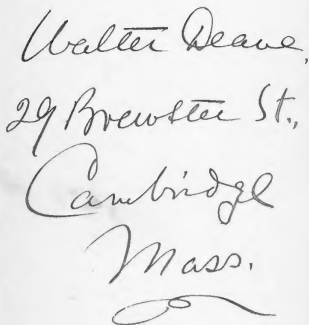 Walter Deane,
29 Brewster St.,
Cambridge
Mass.